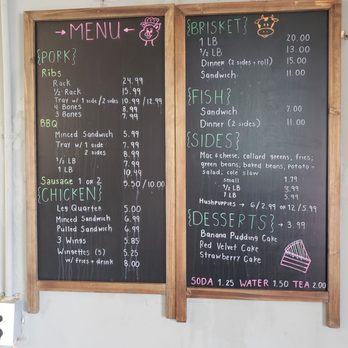 MENU
{PORK}
Ribs
Rack 24.99
1/2 Rack 15.99
Tray w/ 1 side/2 sides 10.99 /12.99
4 Bones 8.99
3 Bones 7.99
BBQ
Minced Sandwich 5.99
Tray w/ 1 side 7.99
2 sides 8.99
1/2 LB 7.99
1 LB 10.49
Sausage 1 or 2 5.50/10.00
{CHICKEN}
Leg Quarter 5.00
Minced Sandwich 6.99
Pulled Sandwich 6.99
3 Wings 5.85
Wingettes (5) 5.25
w/ fries + drink 8.00
{BRISKET}
1 LB 20.00
1/2 LB 13.00
Dinner (2 sides + roll) 15.00
Sandwich 11.00
{FISH}
Sandwich 7.00
Dinner (2 sides) 11.00
{SIDES}
Mac & cheese, collard greens, fries,
green beans, baked beans, potato-
salad, cole slaw
small 1.79
1/2 LB 3.99
1 LB 5.99
Hushpuppies → 6/2.99 or 12/5.99
{DESSERTS} → 3.99
Banana Pudding Cake
Red Velvet Cake
Strawberry Cake
SODA 1.25 WATER 1.50 TEA 2.00